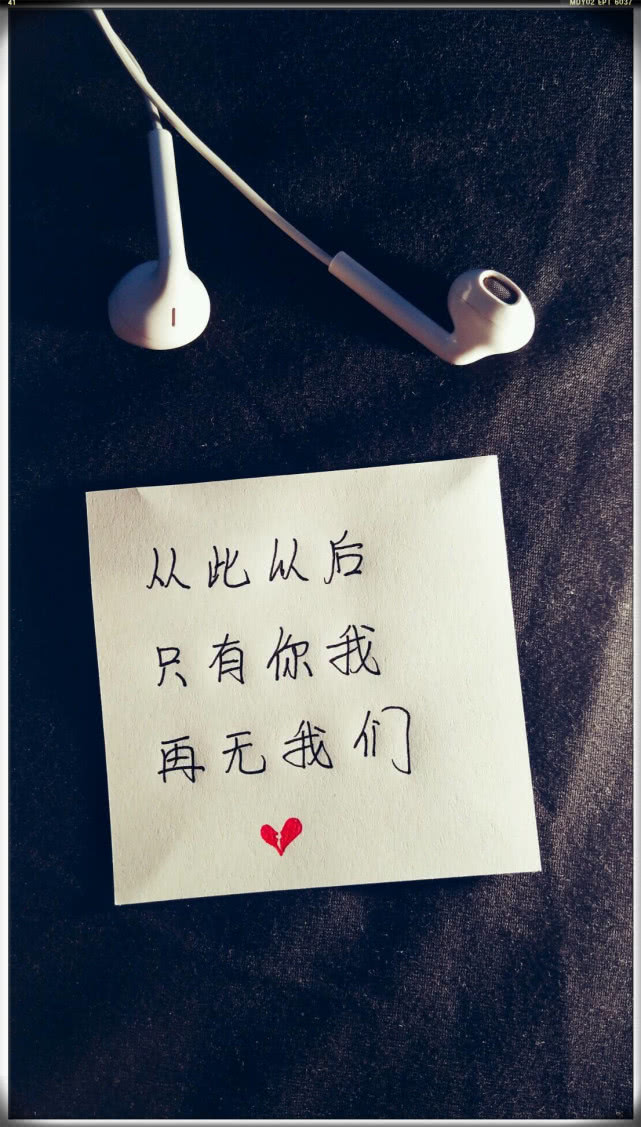 41
MDY02 EPT 6037
从此从后
只有你我
再无我们